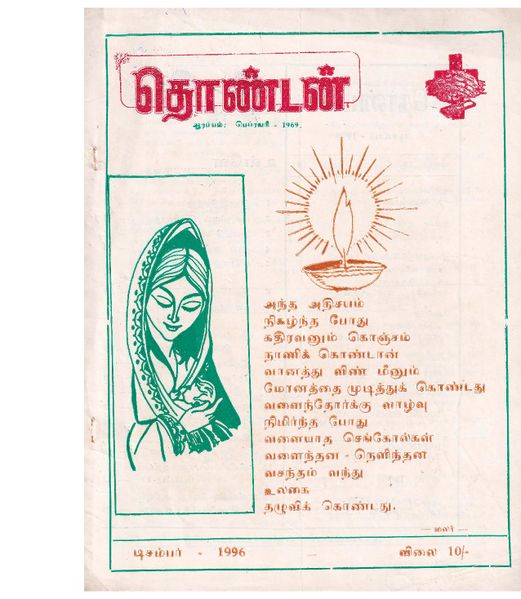 தொண்டன்
ஆரம்பம்: பெப்ரவரி - 1969
அந்த அதிசயம்
நிகழ்ந்த போது
கதிரவனும் கொஞ்சம்
நாணிக் கொண்டான்
வானத்து விண் மீனும்
மோனத்தை முடித்துக் கொண்டது
வளைந்தோர்க்கு வாழ்வு
நிமிர்ந்த போது
வளையாத செங்கோல்கள்
வளைந்தன - நெளிந்தன
வசந்தம் வந்து
உலகை
தழுவிக் கொண்டது.
— மலர் —
டிசம்பர் - 1996 – விலை 10/-